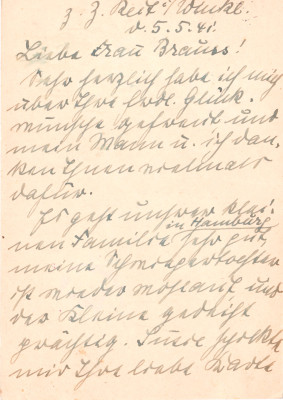 z. Z. Reit i/Winkl.
d. 5.5.41.
Liebe Frau Brauns!
Sehr herzlich habe ich mich
über Ihre frdl. Glück-
wünsche gefreut und
mein Mann u. ich dan-
ken Ihnen vielmals
dafür.
Es geht unserer klei-
nen Familie in Hamburg sehr gut,
meine Schwiegertochter
ist wieder wohlauf und
der Kleine gedeiht
prächtig. schickte
mir Ihre liebe Karte